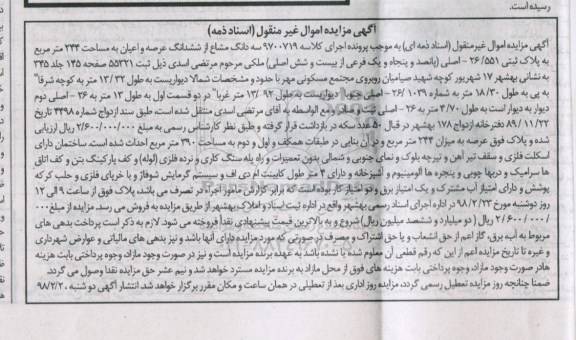 رسیده است.
آگهی مزایده اموال غیر منقول (اسناد ذمه)
آگهی مزایده اموال غیرمنقول (اسناد ذمه ای) به موجب پرونده اجرای کلاسه ۹۷۰۰۷۱۹ سه دانگ مشاع از ششدانگ عرصه و اعیان به مساحت ۲۳۴ متر مربع
به پلاک ثبتی ۲۶/۵۵۱ - اصلی (پانصد و پنجاه و یک فرعی از بیست و شش اصلی) ملکی مرحوم مرتضی اسدی ذیل ثبت ۵۵۳۲۱ صفحه ۱۴۵ جلد ۳۴۵
به نشانی بهشهر ۱۷ شهریور کوچه شهید صیامیان روبروی مجتمع مسکونی مهر با حدود و مشخصات شمالا دیواریست به طول ۱۳/۳۲ متر به کوچه شرقا"
به پی به طول ۱۸/۳۰ متر به شماره ۲۶/۱۰۳۹ - اصلی جنوبا" دیواریست به طول ۱۳/۰۹۲ غربا" در دو قسمت اول به طول ۱۳ متر به ۲۶ - اصلی دوم
دیوار به دیوار است به طول ۴/۷۰ متر به ۲۶ - اصلی ثبت و صادر ومع الواسطه به آقای مرتضی اسدی منتقل شده است، طبق سند ازدواج شماره ۳۴۹۸ تاریخ
۸۹/۱۱/۲۲ دفترخانه ازدواج ۱۷۸ بهشهر در قبال ۵۰ عدد سکه در بازداشت قرار گرفته و طبق نظر کارشناس رسمی به مبلغ ۲/۶۰۰/۰۰۰/۰۰۰ ریال ارزیابی
شده و پلاک فوق عرصه به میزان ۲۳۴ متر مربع و در آن بنایی در طبقات همکف و اول و دوم به مساحت ۳۹۰ متر مربع احداث شده است. ساختمان دارای
اسکلت فلزی و سقف تیر آهن و تیرچه بلوک و نمای جنوبی و شمالی بدون تعمیزات و راه پله سنگ کاری و نرده فلزی (لوله) و کف پارکینگ بتن و کف اتاق
ها سرامیک و دربها چوبی و پنجره ها آلومینیوم و آشپزخانه و دارای ۴ متر طول کابینت ام دی اف و سیستم گرمایش شوفاژ و با خرپای فلزی و حلب کرکه
پوشش و دارای امتیاز آب مشترک و یک امتیاز برق و دو امتیاز گاز بوده است که برابر گزارش مامور اجراء در تصرف می باشد، پلاک فوق از ساعت ۹ الی ۱۲
روز دوشنبه مورخ ۹۸/۲/۲۳ در اداره اجرای اسناد رسمی بهشهر واقع در اداره ثبت اسناد و املاک بهشهر از طریق مزایده به فروش می رسد. مزایده از مبلغ ۰۰۰
/۰۰۰/۲/۶۰۰ ریال (دو میلیارد و ششصد میلیون ریال) شروع و به بالاترین قیمت پیشنهادی نقداً فروخته می شود. لازم به ذکر است پرداخت بدهی های
مربوط به آب، برق، گاز اعم از حق انشعاب و یا حق اشتراک و مصرف در صورتی که مورد مزایده دارای آنها باشد و نیز بدهی های مالیاتی و عوارض شهرداری
و غیره تا تاریخ مزایده اعم از این که رقم قطعی آن معلوم شده یا نشده باشد به عهده برنده مزایده است و نیز در صورت وجود مازاد، وجوه پرداختی بابت هزینه
ها در صورت وجود مازاد، وجوه پرداختی بابت هزینه های فوق از محل مازاد به برنده مزایده مسترد خواهد شد و نیم عشر حق مزایده نقدا وصول می گردد.
ضمنا چنانچه روز مزایده تعطیل رسمی گردد، مزایده روز اداری بعد از تعطیلی در همان ساعت و مکان مقرر برگزار خواهد شد. انتشار آگهی دو شنبه ، ۹۸/۲/۲